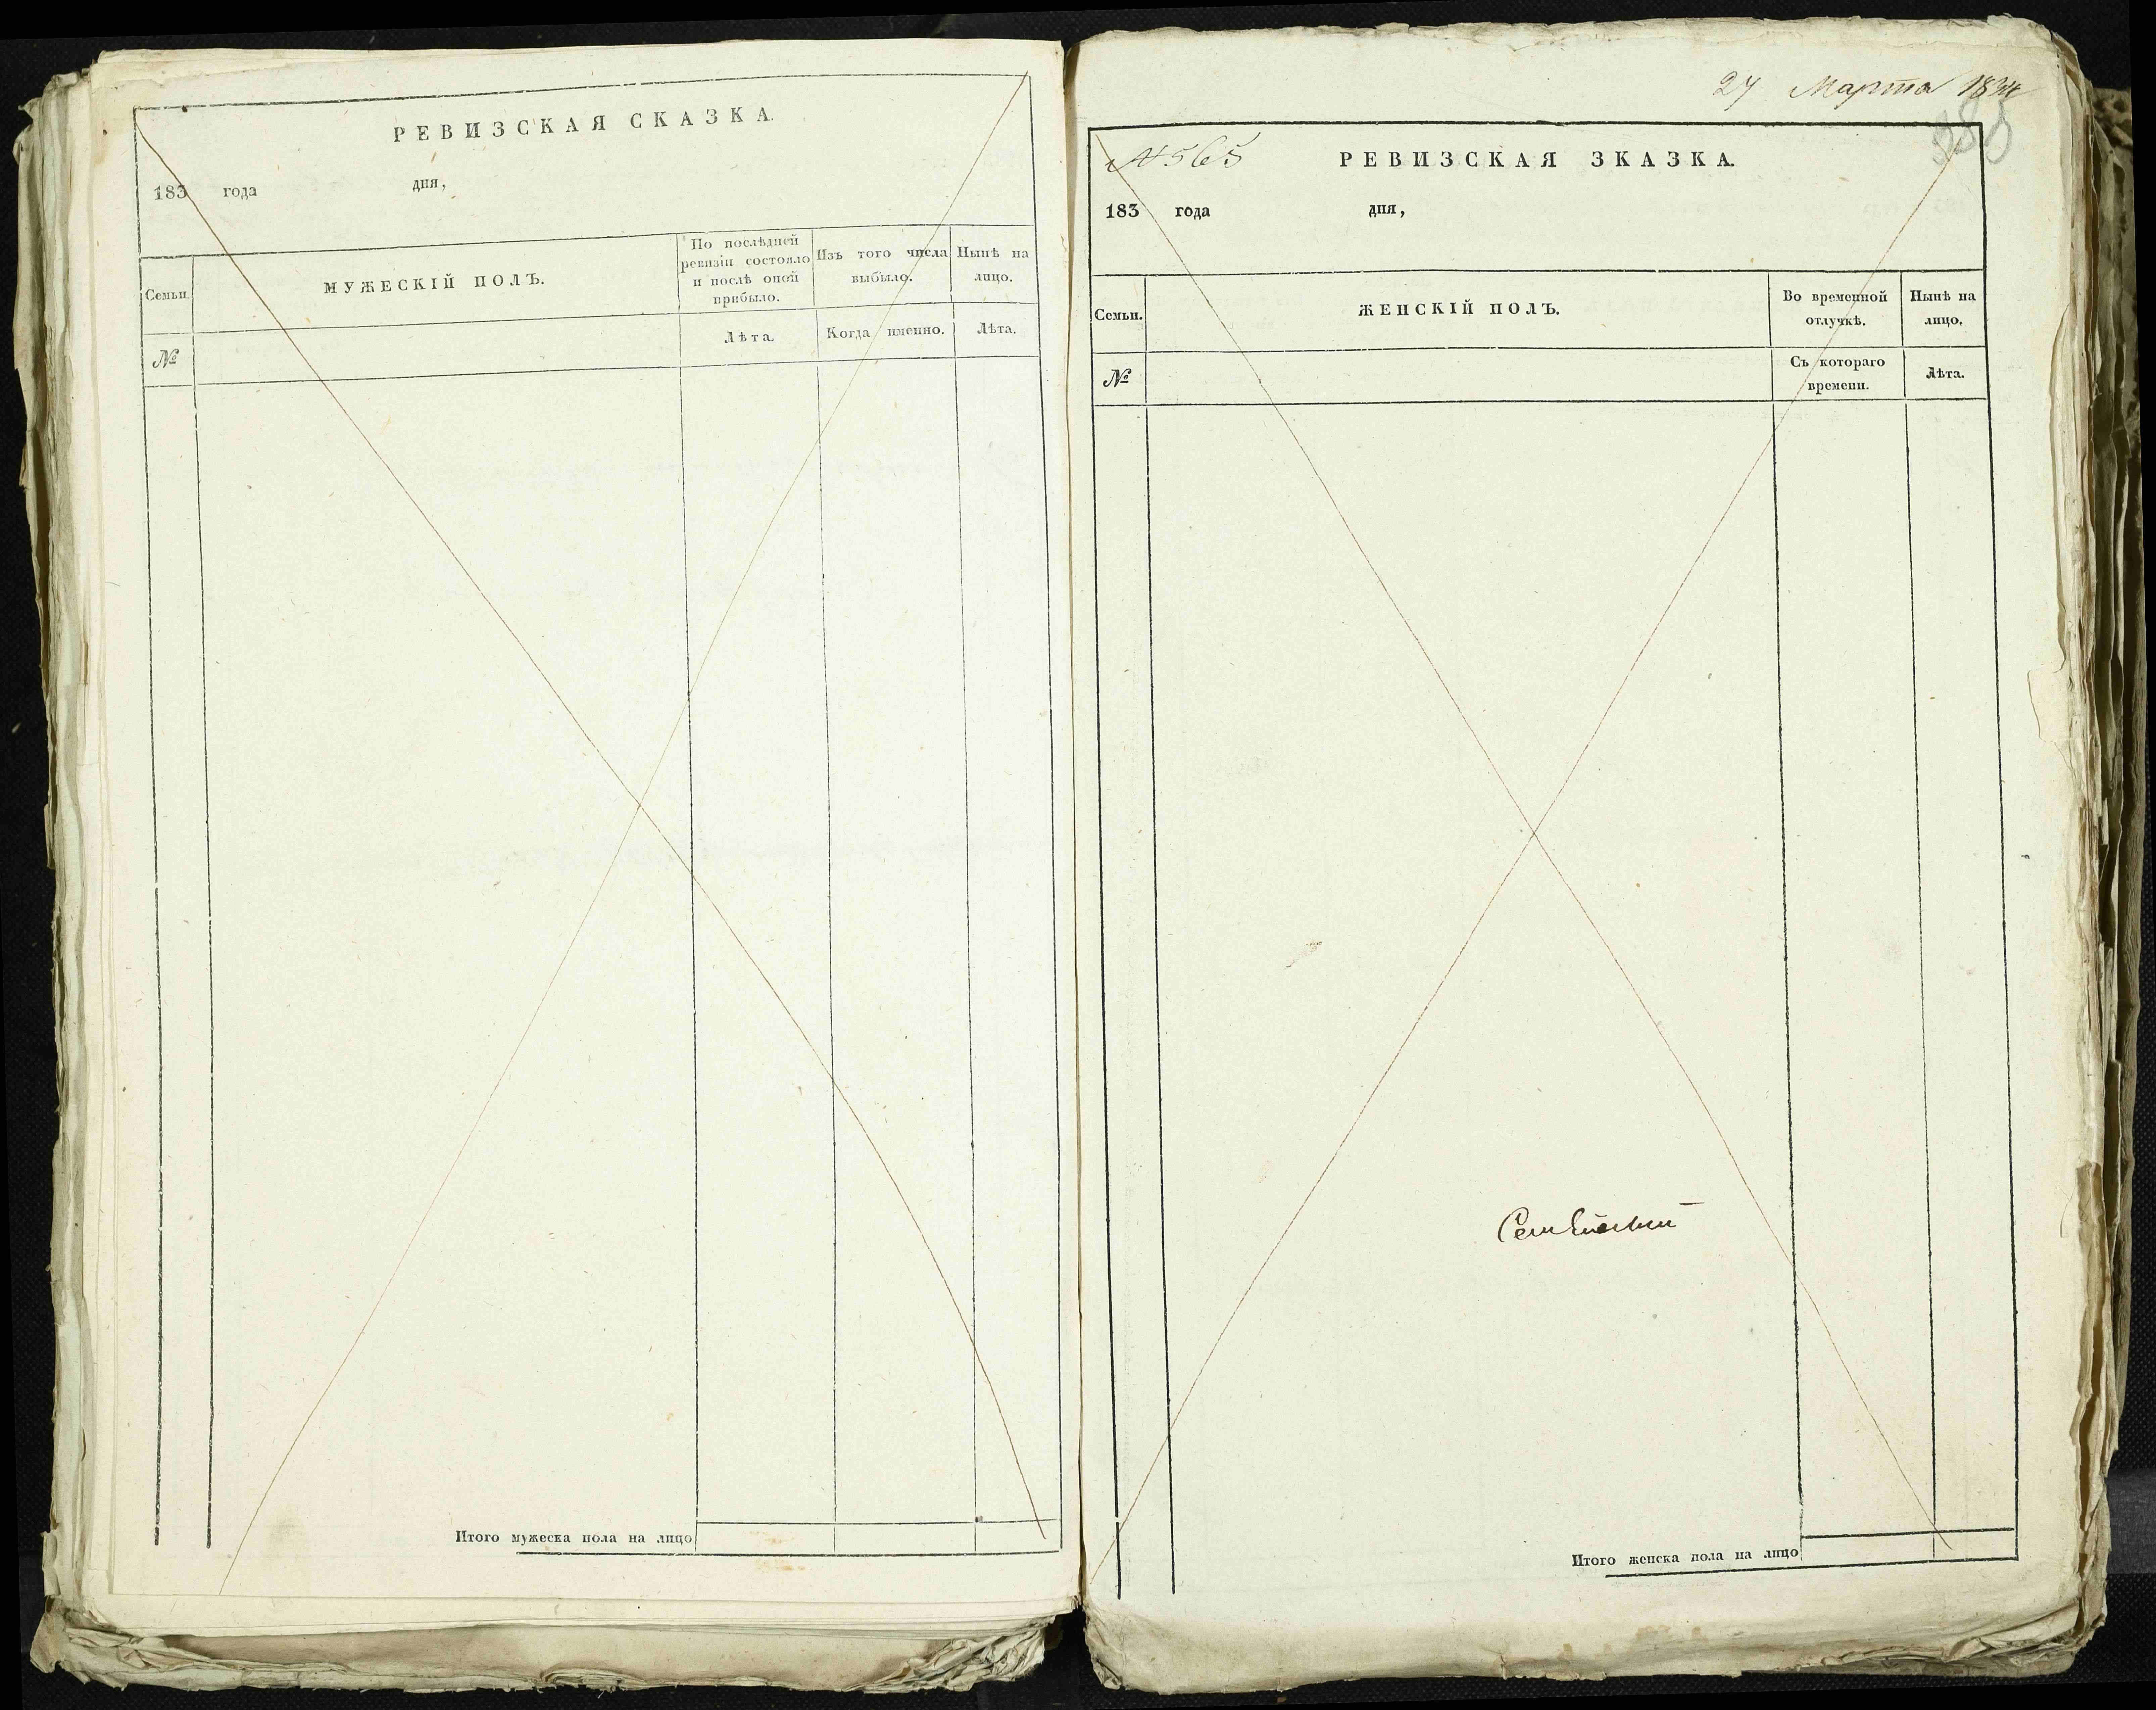 РЕВИЗСКАЯ СКАЗКА.
183 года дня,
Семьи.
МУЖЕСКІЙ ПОЛЪ.
По послѣдней ревизіи состояло и послѣ оной прибыло.
Изъ того числа выбыло.
Нынѣ на лицо.
№
Лѣта.
Когда именно.
Лѣта.
Итого мужеска пола на лицо
27 Марта 1834
№ 565
РЕВИЗСКАЯ ЗКАЗКА.
183 года дня,
Семьи.
ЖЕНСКІЙ ПОЛЪ.
Во временной отлучкѣ.
Нынѣ на лицо.
№
Съ котораго времени.
Лѣта.
Итого женска пола на лицо